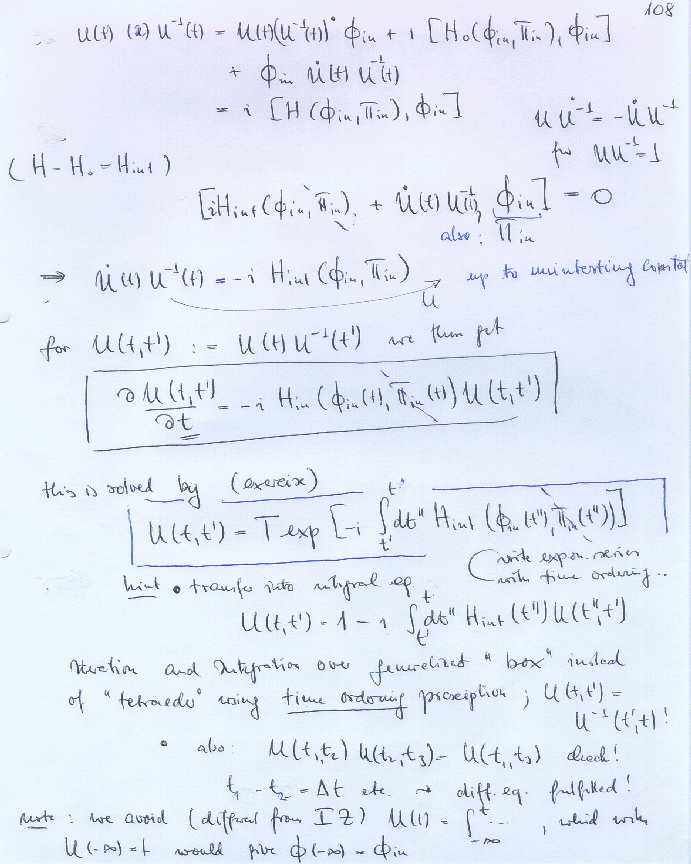 108
U(t) (a) U⁻¹(t) = U(t)(U⁻¹(t))˙ ϕ_in + i [H₀(ϕ_in, Π_in), ϕ_in]
+ ϕ_in U̇(t) U⁻¹(t)
= i [H(ϕ_in, Π_in), ϕ_in]
U U̇⁻¹ = -U̇ U⁻¹
for UU⁻¹=1
(H - H₀ = H_int)
[iH_int(ϕ_in, Π_in) + U̇(t) U⁻¹(t), ϕ_in] = 0
also: Π_in
⇒ U̇(t) U⁻¹(t) = -i H_int(ϕ_in, Π_in)
U
up to uninteresting constant
for U(t,t') := U(t) U⁻¹(t') we then get
∂U(t,t')/∂t = -i H_in(ϕ_in(t), Π_in(t)) U(t,t')
this is solved by (exercise)
U(t,t') = T exp [-i ∫_t'^t dt'' H_int(ϕ_in(t''), Π_in(t''))]
write expon. series
with time ordering..
hint • transfer into integral eq.
U(t,t') = 1 - i ∫_t'^t dt'' H_int(t'') U(t'',t')
iteration and integration over generalized "box" instead
of "tetraedo" using time ordering prescription ; U(t,t') =
U⁻¹(t',t) !
• also: U(t₁,t₂) U(t₂,t₃) = U(t₁,t₃) check!
t₁ - t₂ = Δt etc. → diff. eq. fulfilled!
note : we avoid (different from IZ) U(t) = ∫_-∞^t ... , which with
U(-∞)=1 would give ϕ(-∞) = ϕ_in